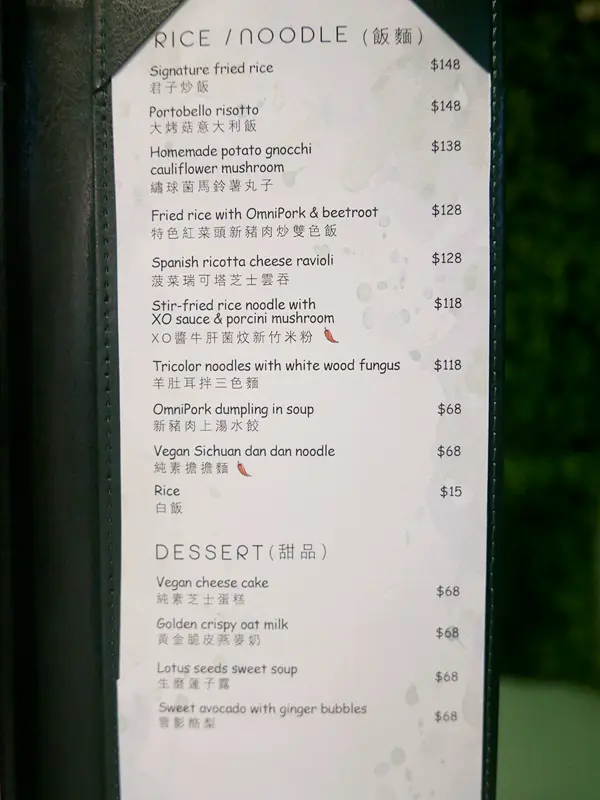 RICE /NOODLE (飯麵)
Signature fried rice $148
君子炒飯
Portobello risotto $148
大烤菇意大利飯
Homemade potato gnocchi $138
cauliflower mushroom
繡球菌馬鈴薯丸子
Fried rice with OmniPork & beetroot $128
特色紅菜頭新豬肉炒雙色飯
Spanish ricotta cheese ravioli $128
菠菜瑞可塔芝士雲吞
Stir-fried rice noodle with $118
XO sauce & porcini mushroom
XO醬牛肝菌炆新竹米粉
Tricolor noodles with white wood fungus $118
羊肚耳拌三色麵
OmniPork dumpling in soup $68
新豬肉上湯水餃
Vegan Sichuan dan dan noodle $68
純素擔擔麵
Rice $15
白飯
DESSERT(甜品)
Vegan cheese cake $68
純素芝士蛋糕
Golden crispy oat milk $68
黃金脆皮燕麥奶
Lotus seeds sweet soup $68
生磨蓮子露
Sweet avocado with ginger bubbles $68
雪影酪梨